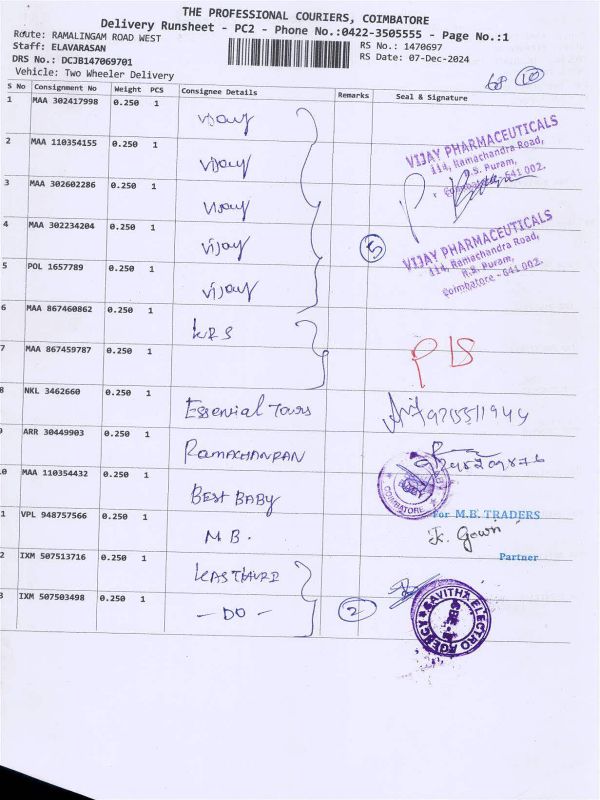 THE PROFESSIONAL COURIERS, COIMBATORE
Delivery Runsheet - PC2 - Phone No.:0422-3505555 - Page No.:1
Route: RAMALINGAM ROAD WEST
RS No.: 1470697
Staff: ELAVARASAN
RS Date: 07-Dec-2024
DRS No.: DCJB147069701
Vehicle: Two Wheeler Delivery
68 (10)
S No Consignment No Weight PCS Consignee Details Remarks Seal & Signature
1 MAA 302417998 0.250 1 vijay
2 MAA 110354155 0.250 1 vijay
VIJAY PHARMACEUTICALS
114, Ramachandra Road,
R.S. Puram,
Coimbatore - 641 002.
3 MAA 302602286 0.250 1 vijay
4 MAA 302234204 0.250 1 vijay 5
VIJAY PHARMACEUTICALS
114, Ramachandra Road,
R.S. Puram,
Coimbatore - 641 002.
5 POL 1657789 0.250 1 vijay
6 MAA 867460862 0.250 1 KRS
7 MAA 867459787 0.250 1
8 NKL 3462660 0.250 1 Essential Tours
9 ARR 30449903 0.250 1 RAMACHANRAN
0 MAA 110354432 0.250 1 BEST BABY
COIMBATORE
1 VPL 948757566 0.250 1 M.B.
For M.B. TRADERS
K. Gowri
Partner
2 IXM 507513716 0.250 1 KASTHURI
3 IXM 507503498 0.250 1 - DO - 2
SAVITHA ELECTRO AGENCY